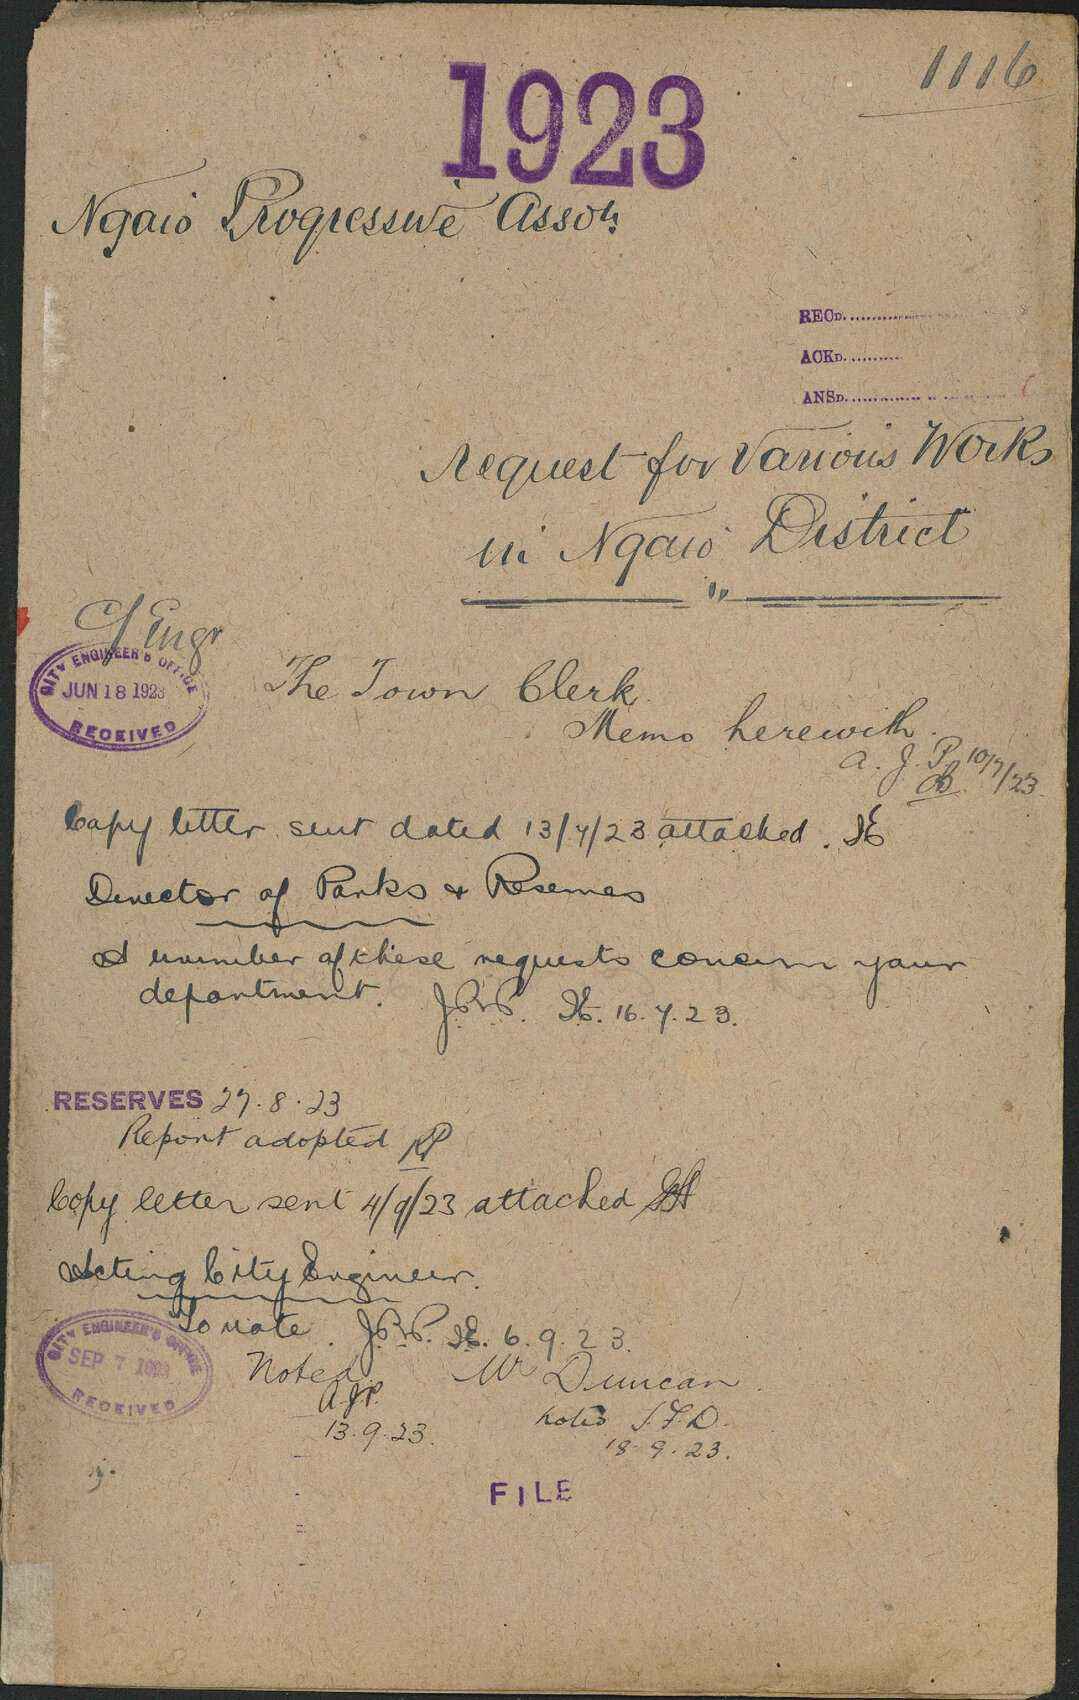 1116
1923
Ngaio Progressive Asson.
RECD.
ACKD.
ANSD.
Request for Various Works
in Ngaio District
C/Engr
CITY ENGINEER'S OFFICE
JUN 18 1923
RECEIVED
The Town Clerk
Memo herewith.
A. J. P. 10/7/23
Copy letter sent dated 13/7/23 attached.
Director of Parks & Reserves
A number of these requests concern your
department. 16.7.23.
RESERVES 27.8.23
Report adopted
Copy letter sent 4/9/23 attached
Acting City Engineer.
To note. 6.9.23.
CITY ENGINEER'S OFFICE
SEP 7 1923
RECEIVED
Noted Mr Duncan.
A.J.P. Noted J.F.D.
13.9.23. 18.9.23.
FILE